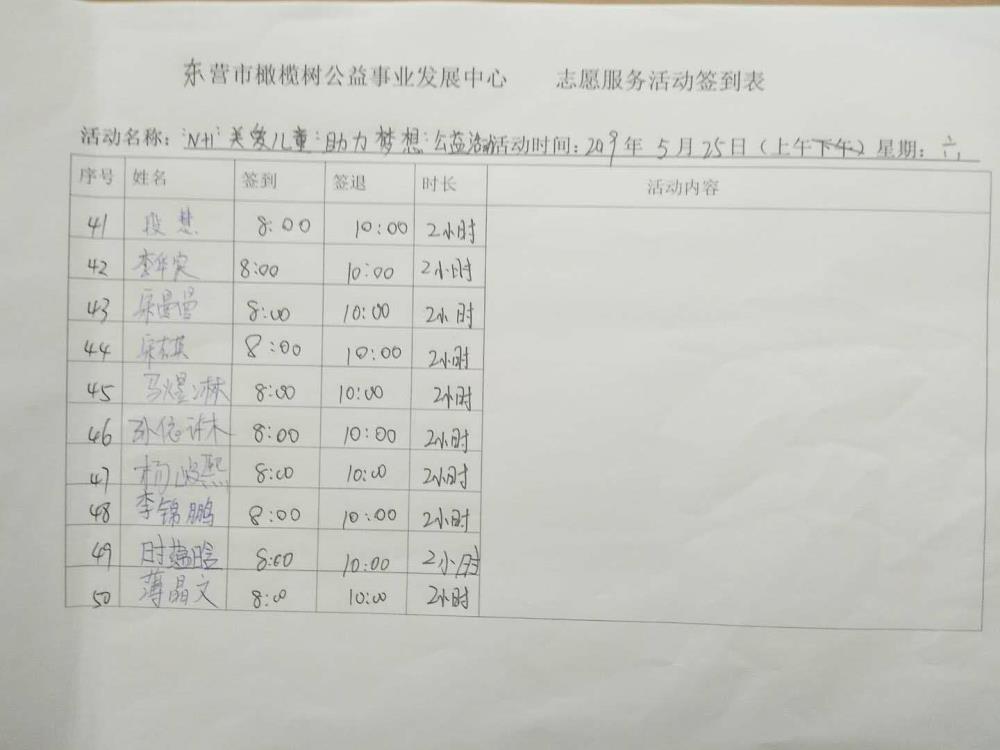 东营市橄榄树公益事业发展中心 志愿服务活动签到表
活动名称: "N+1"关爱儿童·助力梦想·公益活动 活动时间: 2019年 5月25日(上午下午)星期: 六
序号 姓名 签到 签退 时长 活动内容
41 段慧 8:00 10:00 2小时
42 8:00 10:00 2小时
43 8:00 10:00 2小时
44 8:00 10:00 2小时
45 马煜琳 8:00 10:00 2小时
46 孙依诺 8:00 10:00 2小时
47 杨峻熙 8:00 10:00 2小时
48 李锦鹏 8:00 10:00 2小时
49 8:00 10:00 2小时
50 薄晶文 8:00 10:00 2小时